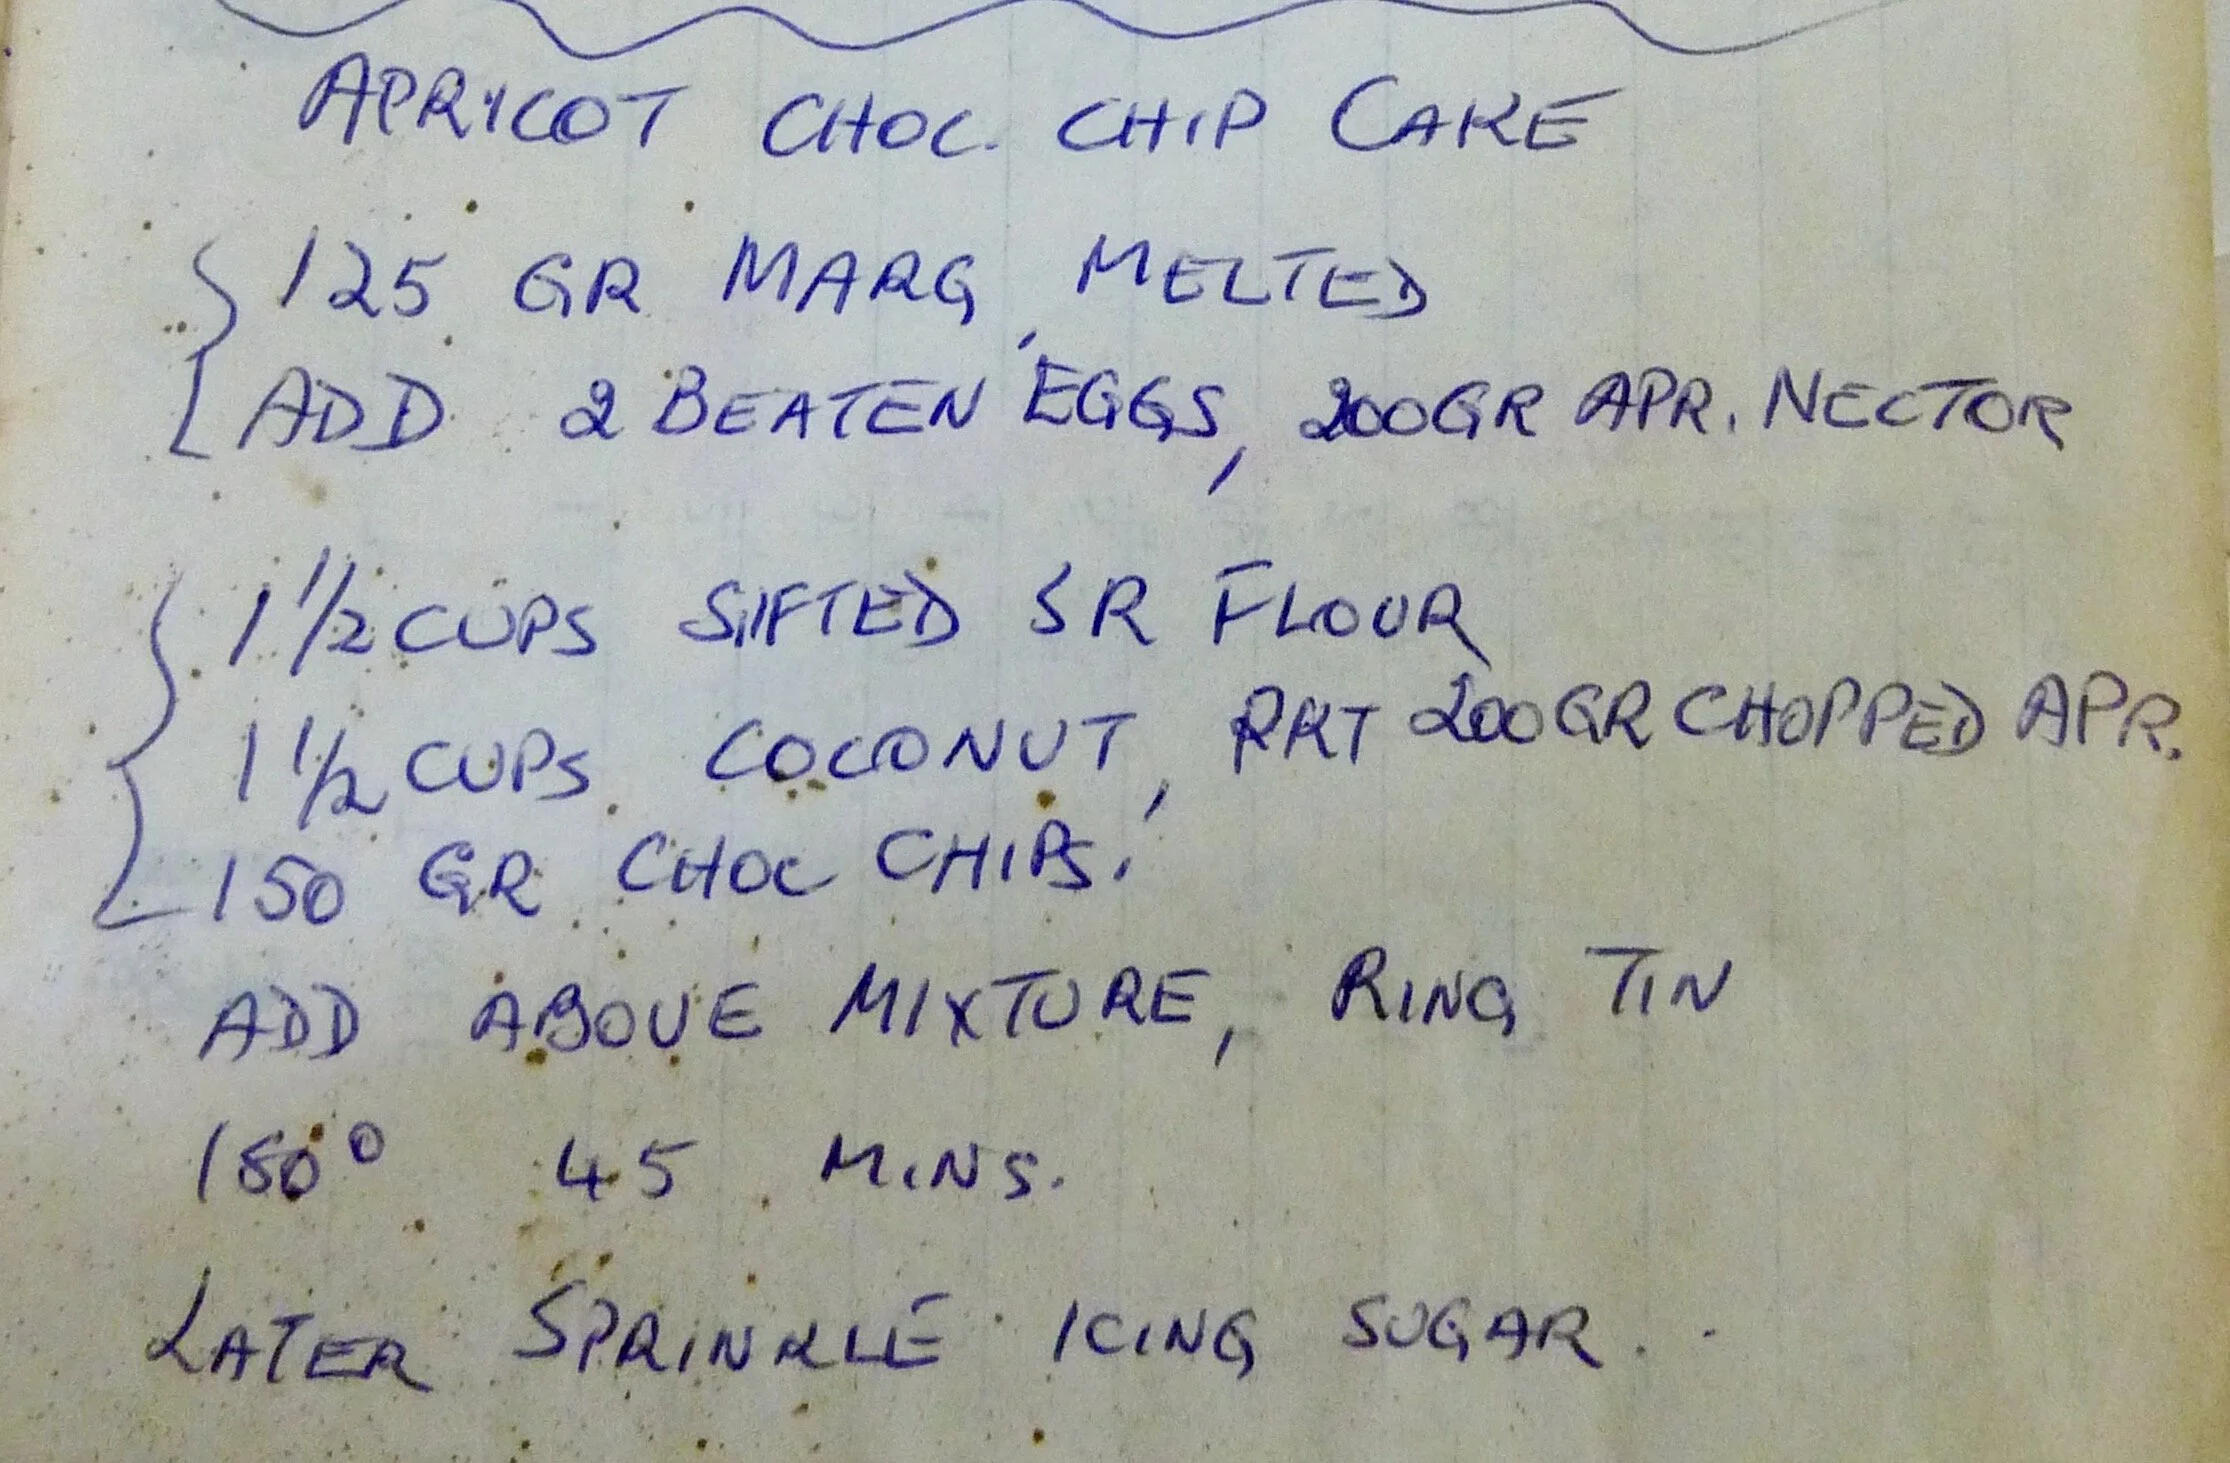 APRICOT CHOC. CHIP CAKE
125 GR MARG, MELTED
ADD 2 BEATEN EGGS, 200GR APR. NECTOR
1 1/2 CUPS SIFTED SR FLOUR
1 1/2 CUPS COCONUT, PKT 200GR CHOPPED APR.
150 GR CHOC CHIPS.
ADD ABOVE MIXTURE, RING TIN
45 MINS.
LATER SPRINKLE ICING SUGAR.